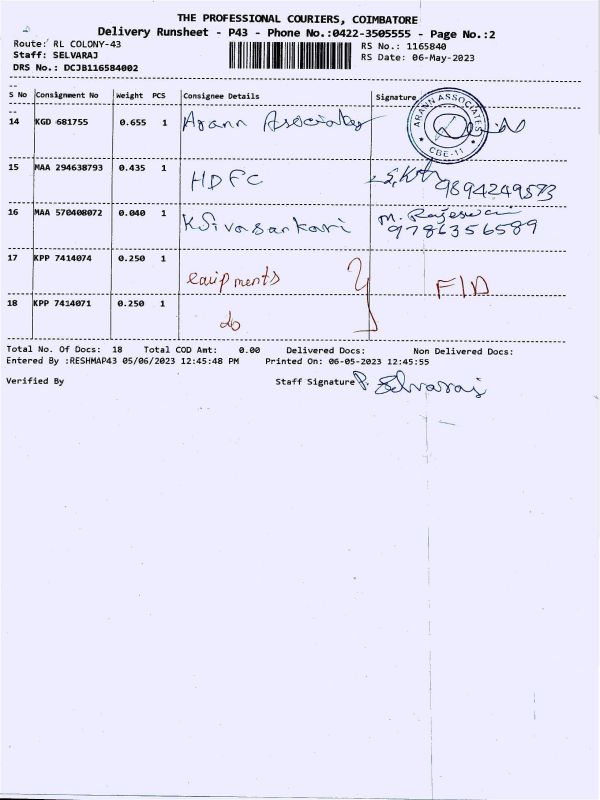 THE PROFESSIONAL COURIERS, COIMBATORE
Delivery Runsheet - P43 - Phone No.:0422-3505555 - Page No.:2
Route: RL COLONY-43 RS No.: 1165840
Staff: SELVARAJ RS Date: 06-May-2023
DRS No.: DCJB116584002
S No Consignment No Weight PCS Consignee Details Signature
14 KGD 681755 0.655 1 Arann Associates
ARANN ASSOCIATES
CBE-11
15 MAA 294638793 0.435 1 HDFC 9894249593
16 MAA 570408072 0.040 1 K Sivasankari M. Rajeswari
9786356589
17 KPP 7414074 0.250 1 equipments F/D
18 KPP 7414071 0.250 1 do
Total No. Of Docs: 18 Total COD Amt: 0.00 Delivered Docs: Non Delivered Docs:
Entered By :RESHMAP43 05/06/2023 12:45:48 PM Printed On: 06-05-2023 12:45:55
Verified By Staff Signature P. Selvaraj